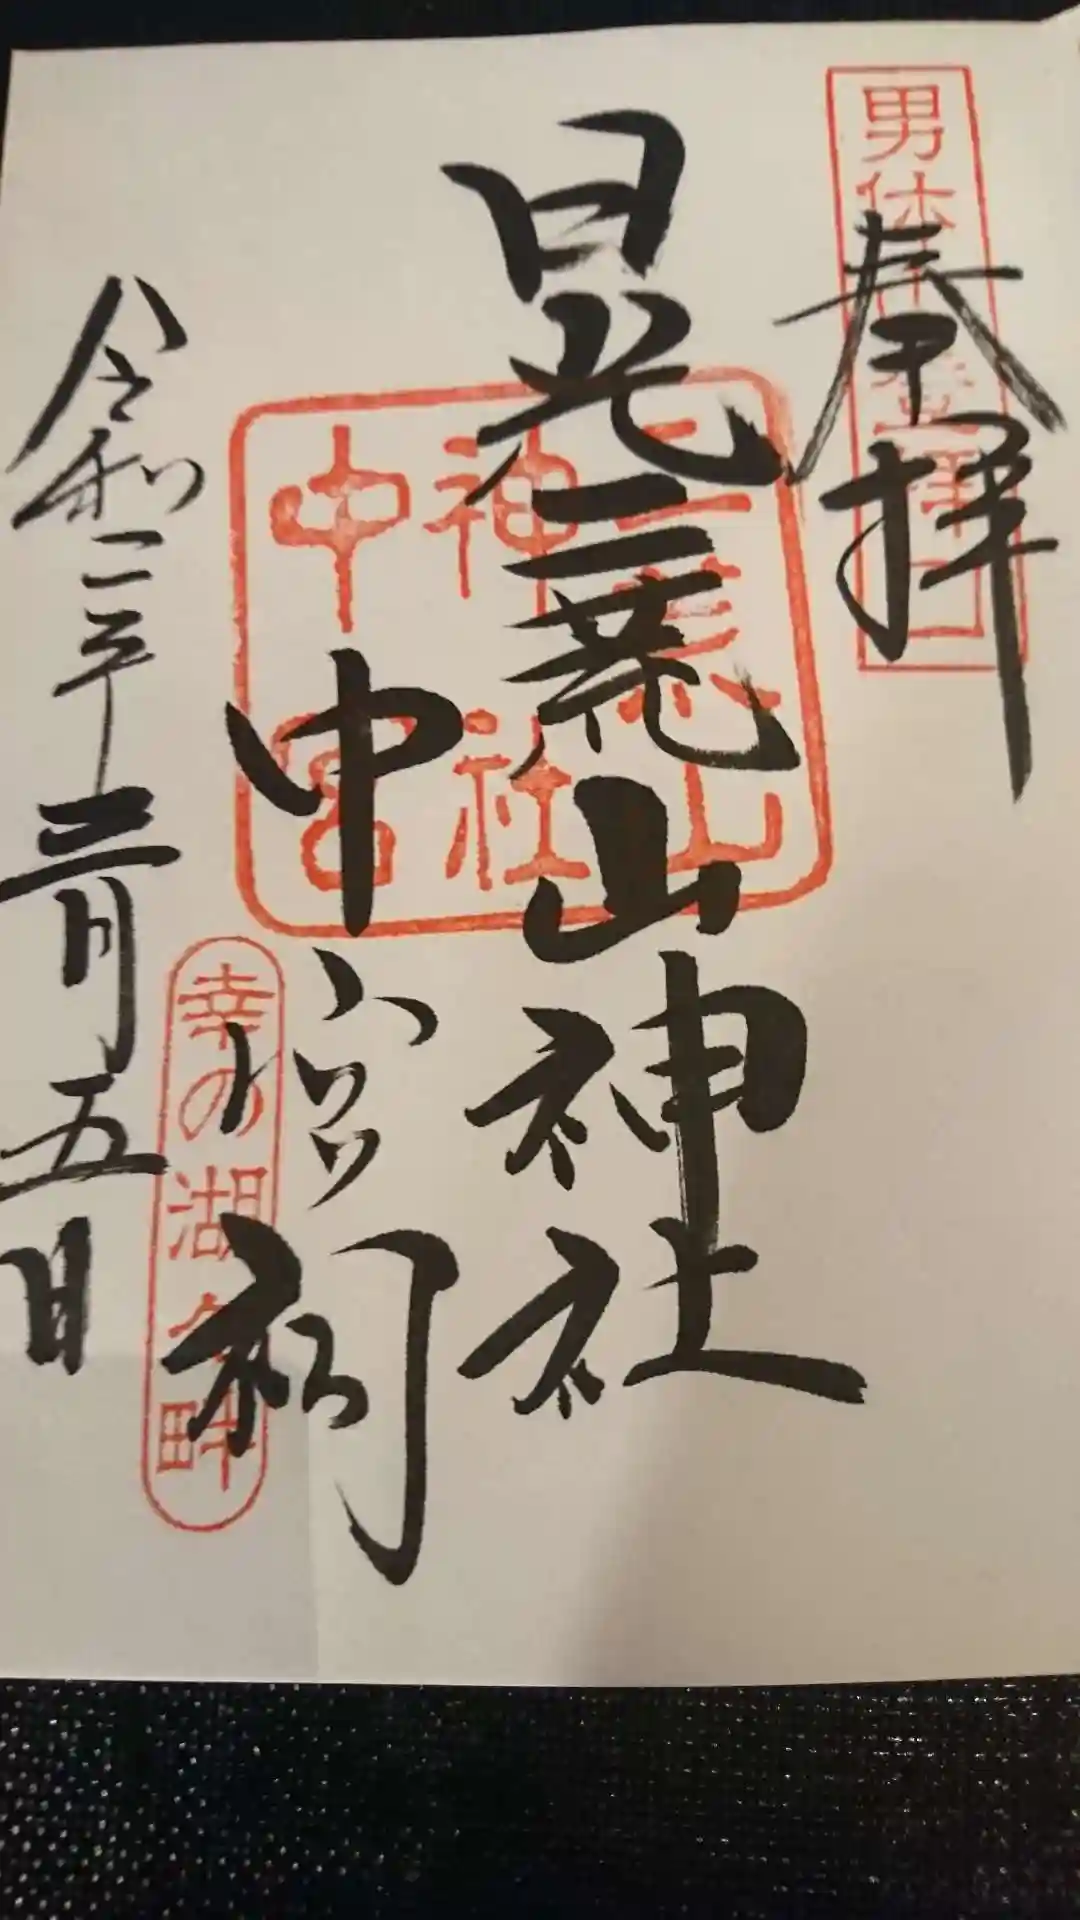 奉拝
男体山登拝口
日光二荒山神社
二荒山
神社
中宮
中宮祠
幸の湖畔
令和二年三月五日